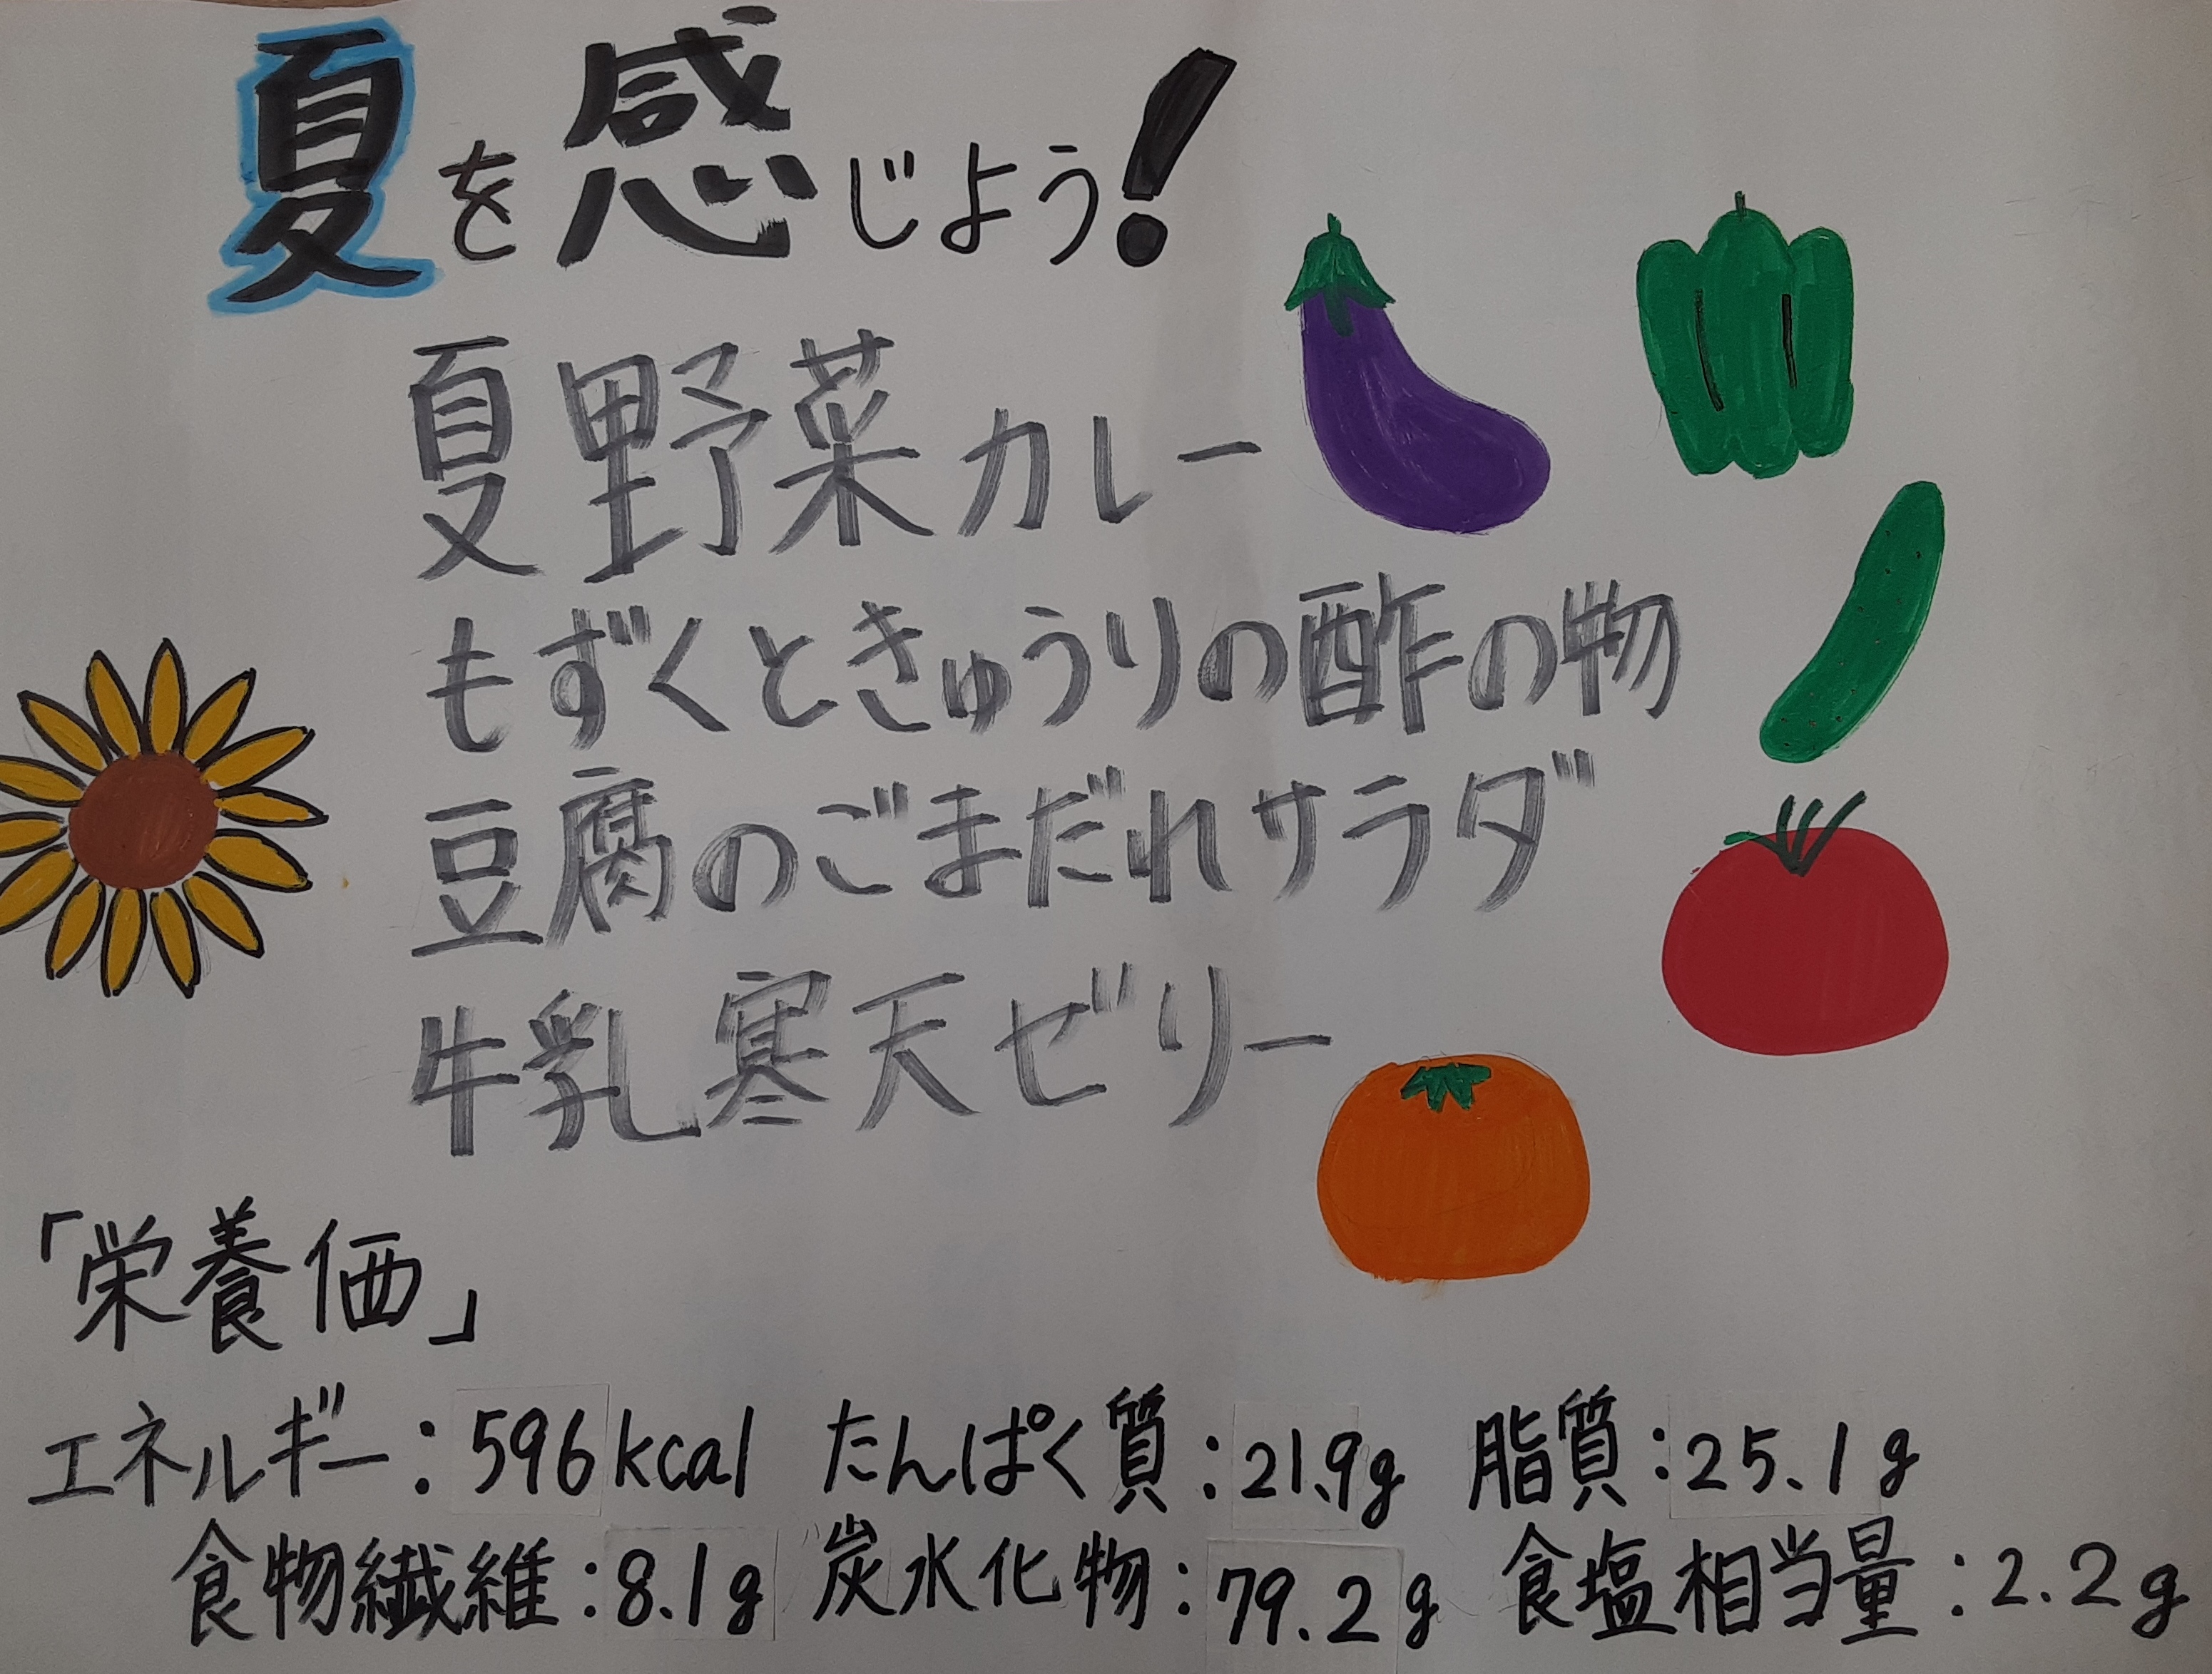 夏を感じよう!
夏野菜カレー
もずくときゅうりの酢の物
豆腐のごまだれサラダ
牛乳寒天ゼリー
「栄養価」
エネルギー:596kcal たんぱく質:21.9g 脂質:25.1g
食物繊維:8.1g 炭水化物:79.2g 食塩相当量:2.2g